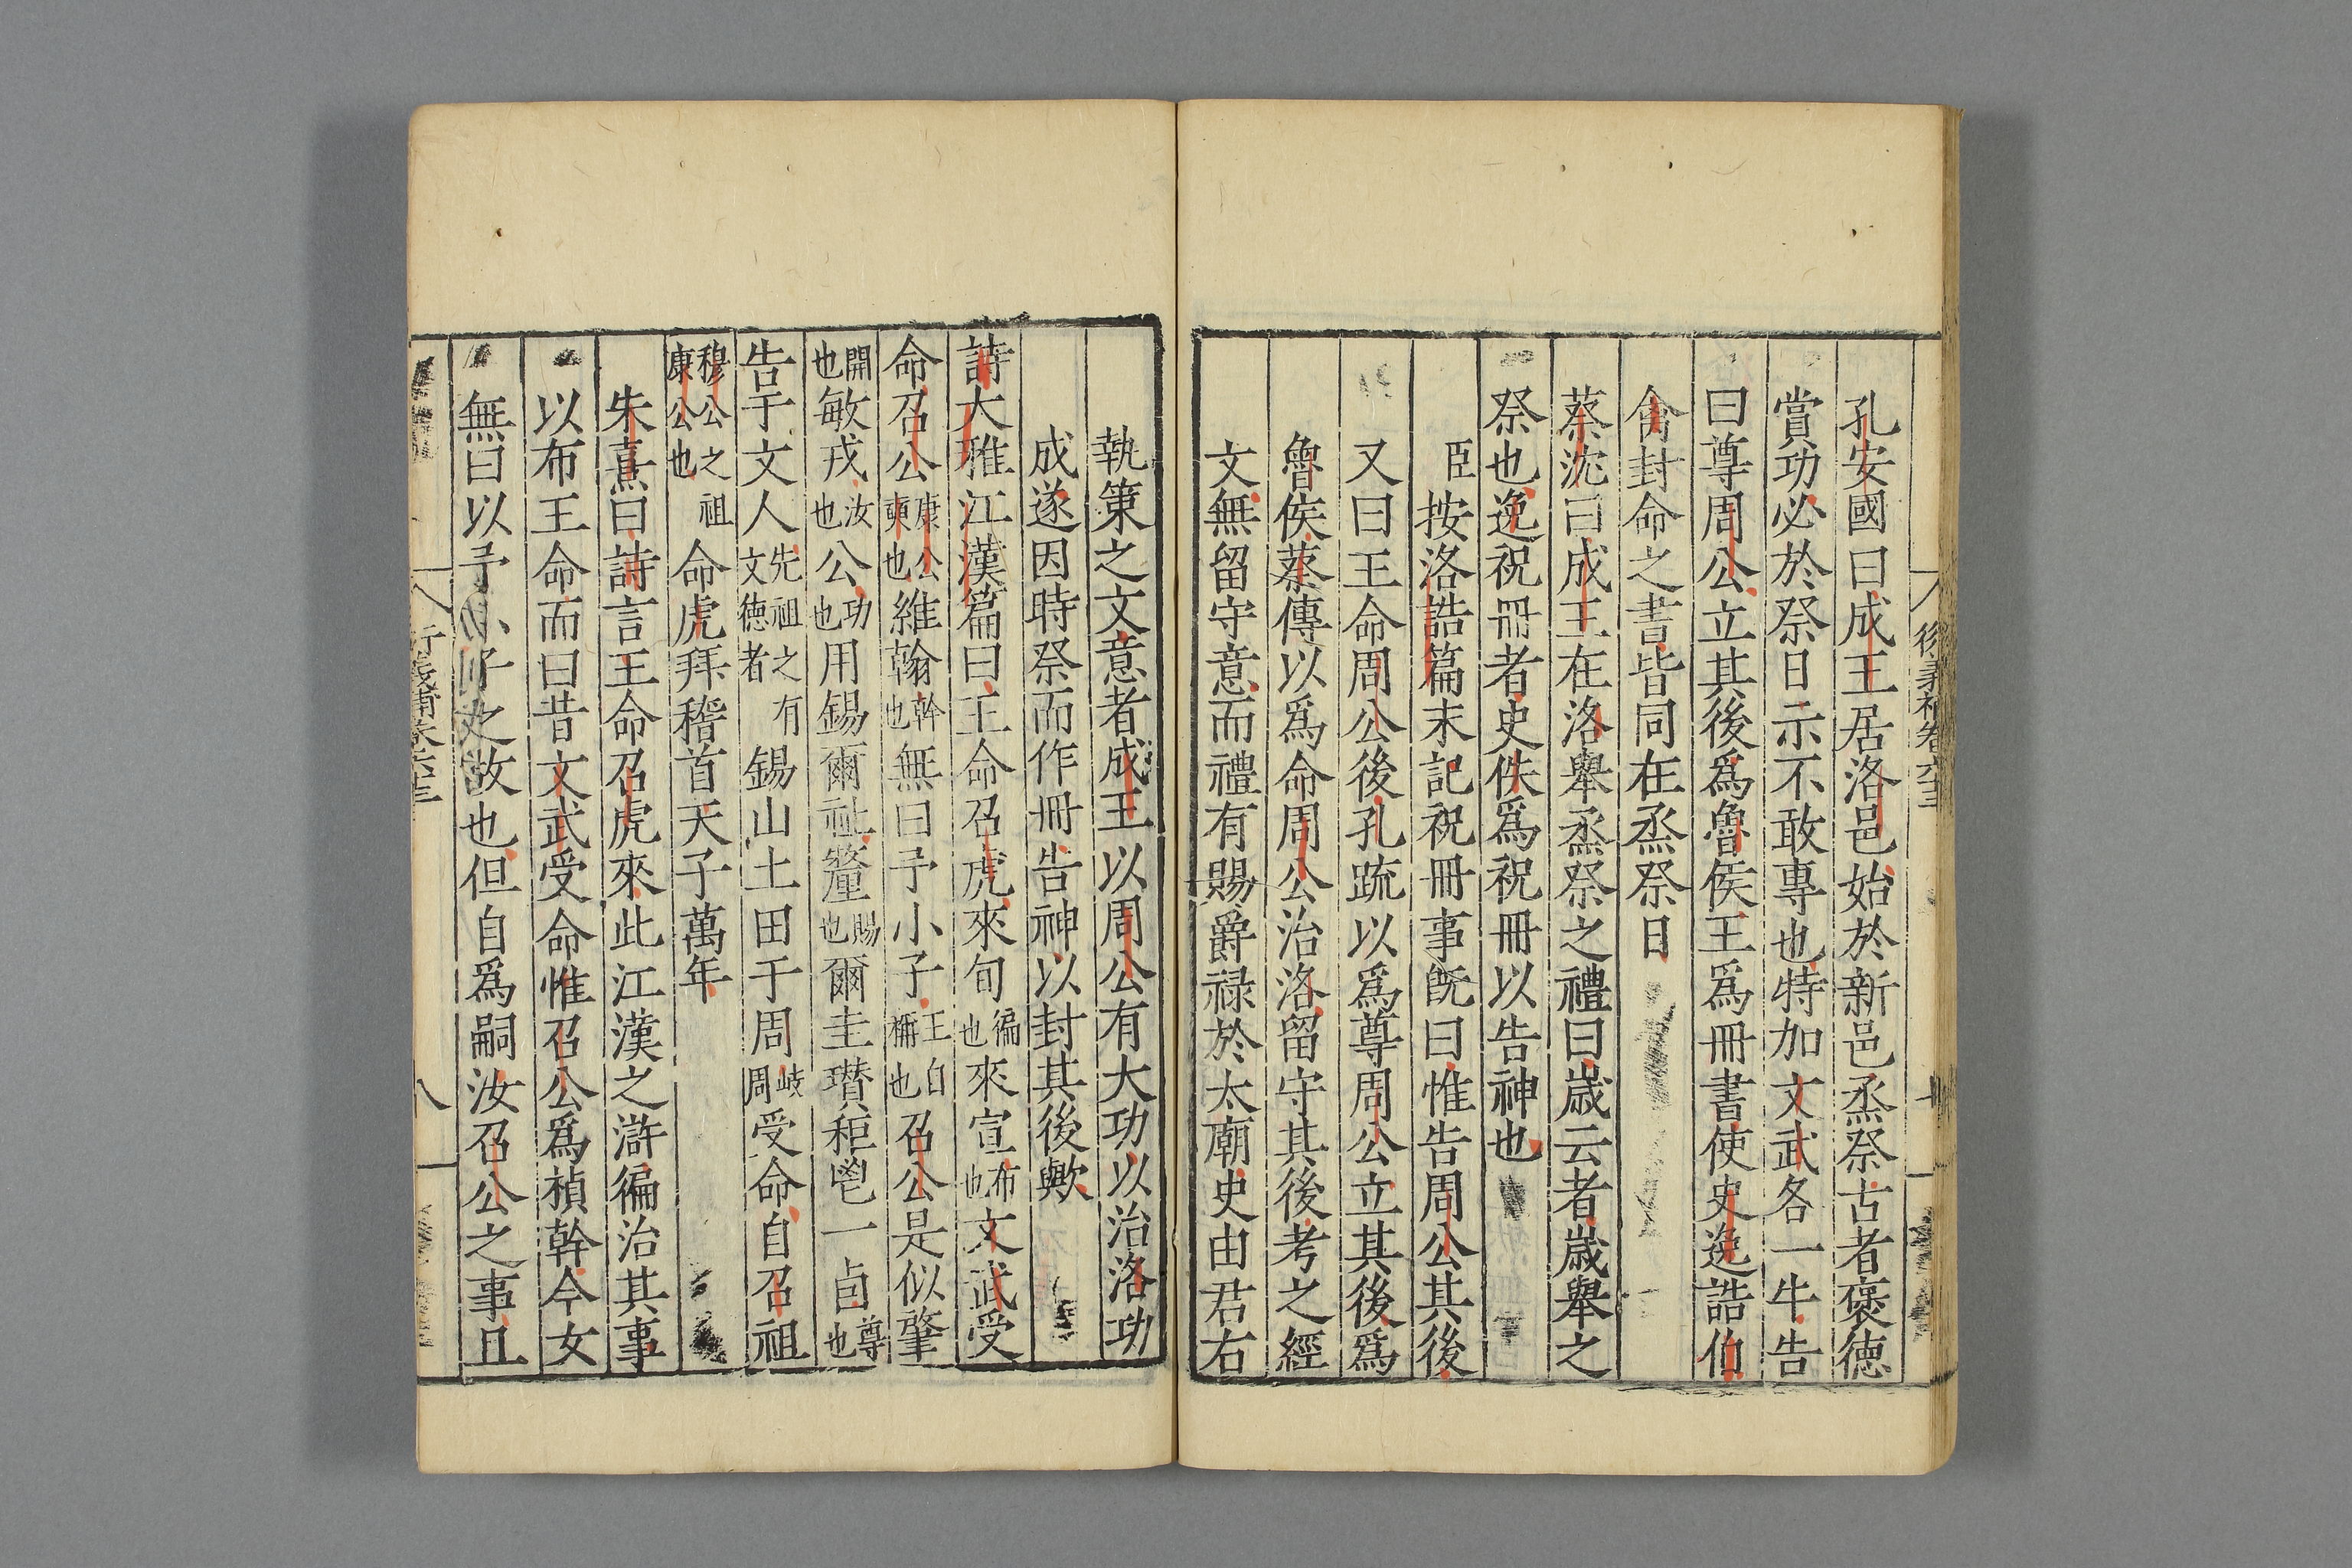 孔安國曰成王居洛邑始於新邑烝祭古者褒德
賞功必於祭日示不敢專也特加文武各一牛告
曰尊周公立其後爲魯侯王爲冊書使史逸誥伯
禽封命之書皆同在烝祭日
蔡沈曰成王在洛舉烝祭之禮曰歲云者歲舉之
祭也逸祝冊者史佚爲祝冊以告神也
臣按洛誥篇末記祝冊事旣曰惟告周公其後
又曰王命周公後孔疏以爲尊周公立其後爲
魯侯蔡傳以爲命周公治洛留守其後考之經
文無留守意而禮有賜爵祿於太廟史由君右
執策之文意者成王以周公有大功以治洛功
成遂因時祭而作冊告神以封其後歟
詩大雅江漢篇曰王命召虎來旬徧也來宣布也文武受
命召公康公奭也維翰幹也無曰予小子王自稱也召公是似肇
開也敏戎汝也公功也用錫爾祉釐賜也爾圭瓚秬鬯一卣尊也
告于文人先祖之有文德者錫山土田于周岐周受命自召祖
穆公之祖康公也命虎拜稽首天子萬年
朱熹曰詩言王命召虎來此江漢之滸徧治其事
以布王命而曰昔文武受命惟召公爲楨幹今女
無曰以予小子之故也但自爲嗣汝召公之事且